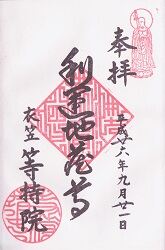 奉拝
平成廿六年九月廿一日
利運地蔵尊
衣笠
等持院